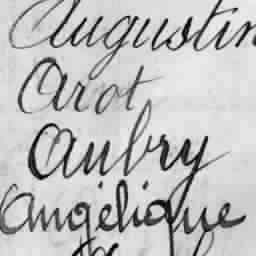 Augustin
Arot
Aubry
Angélique